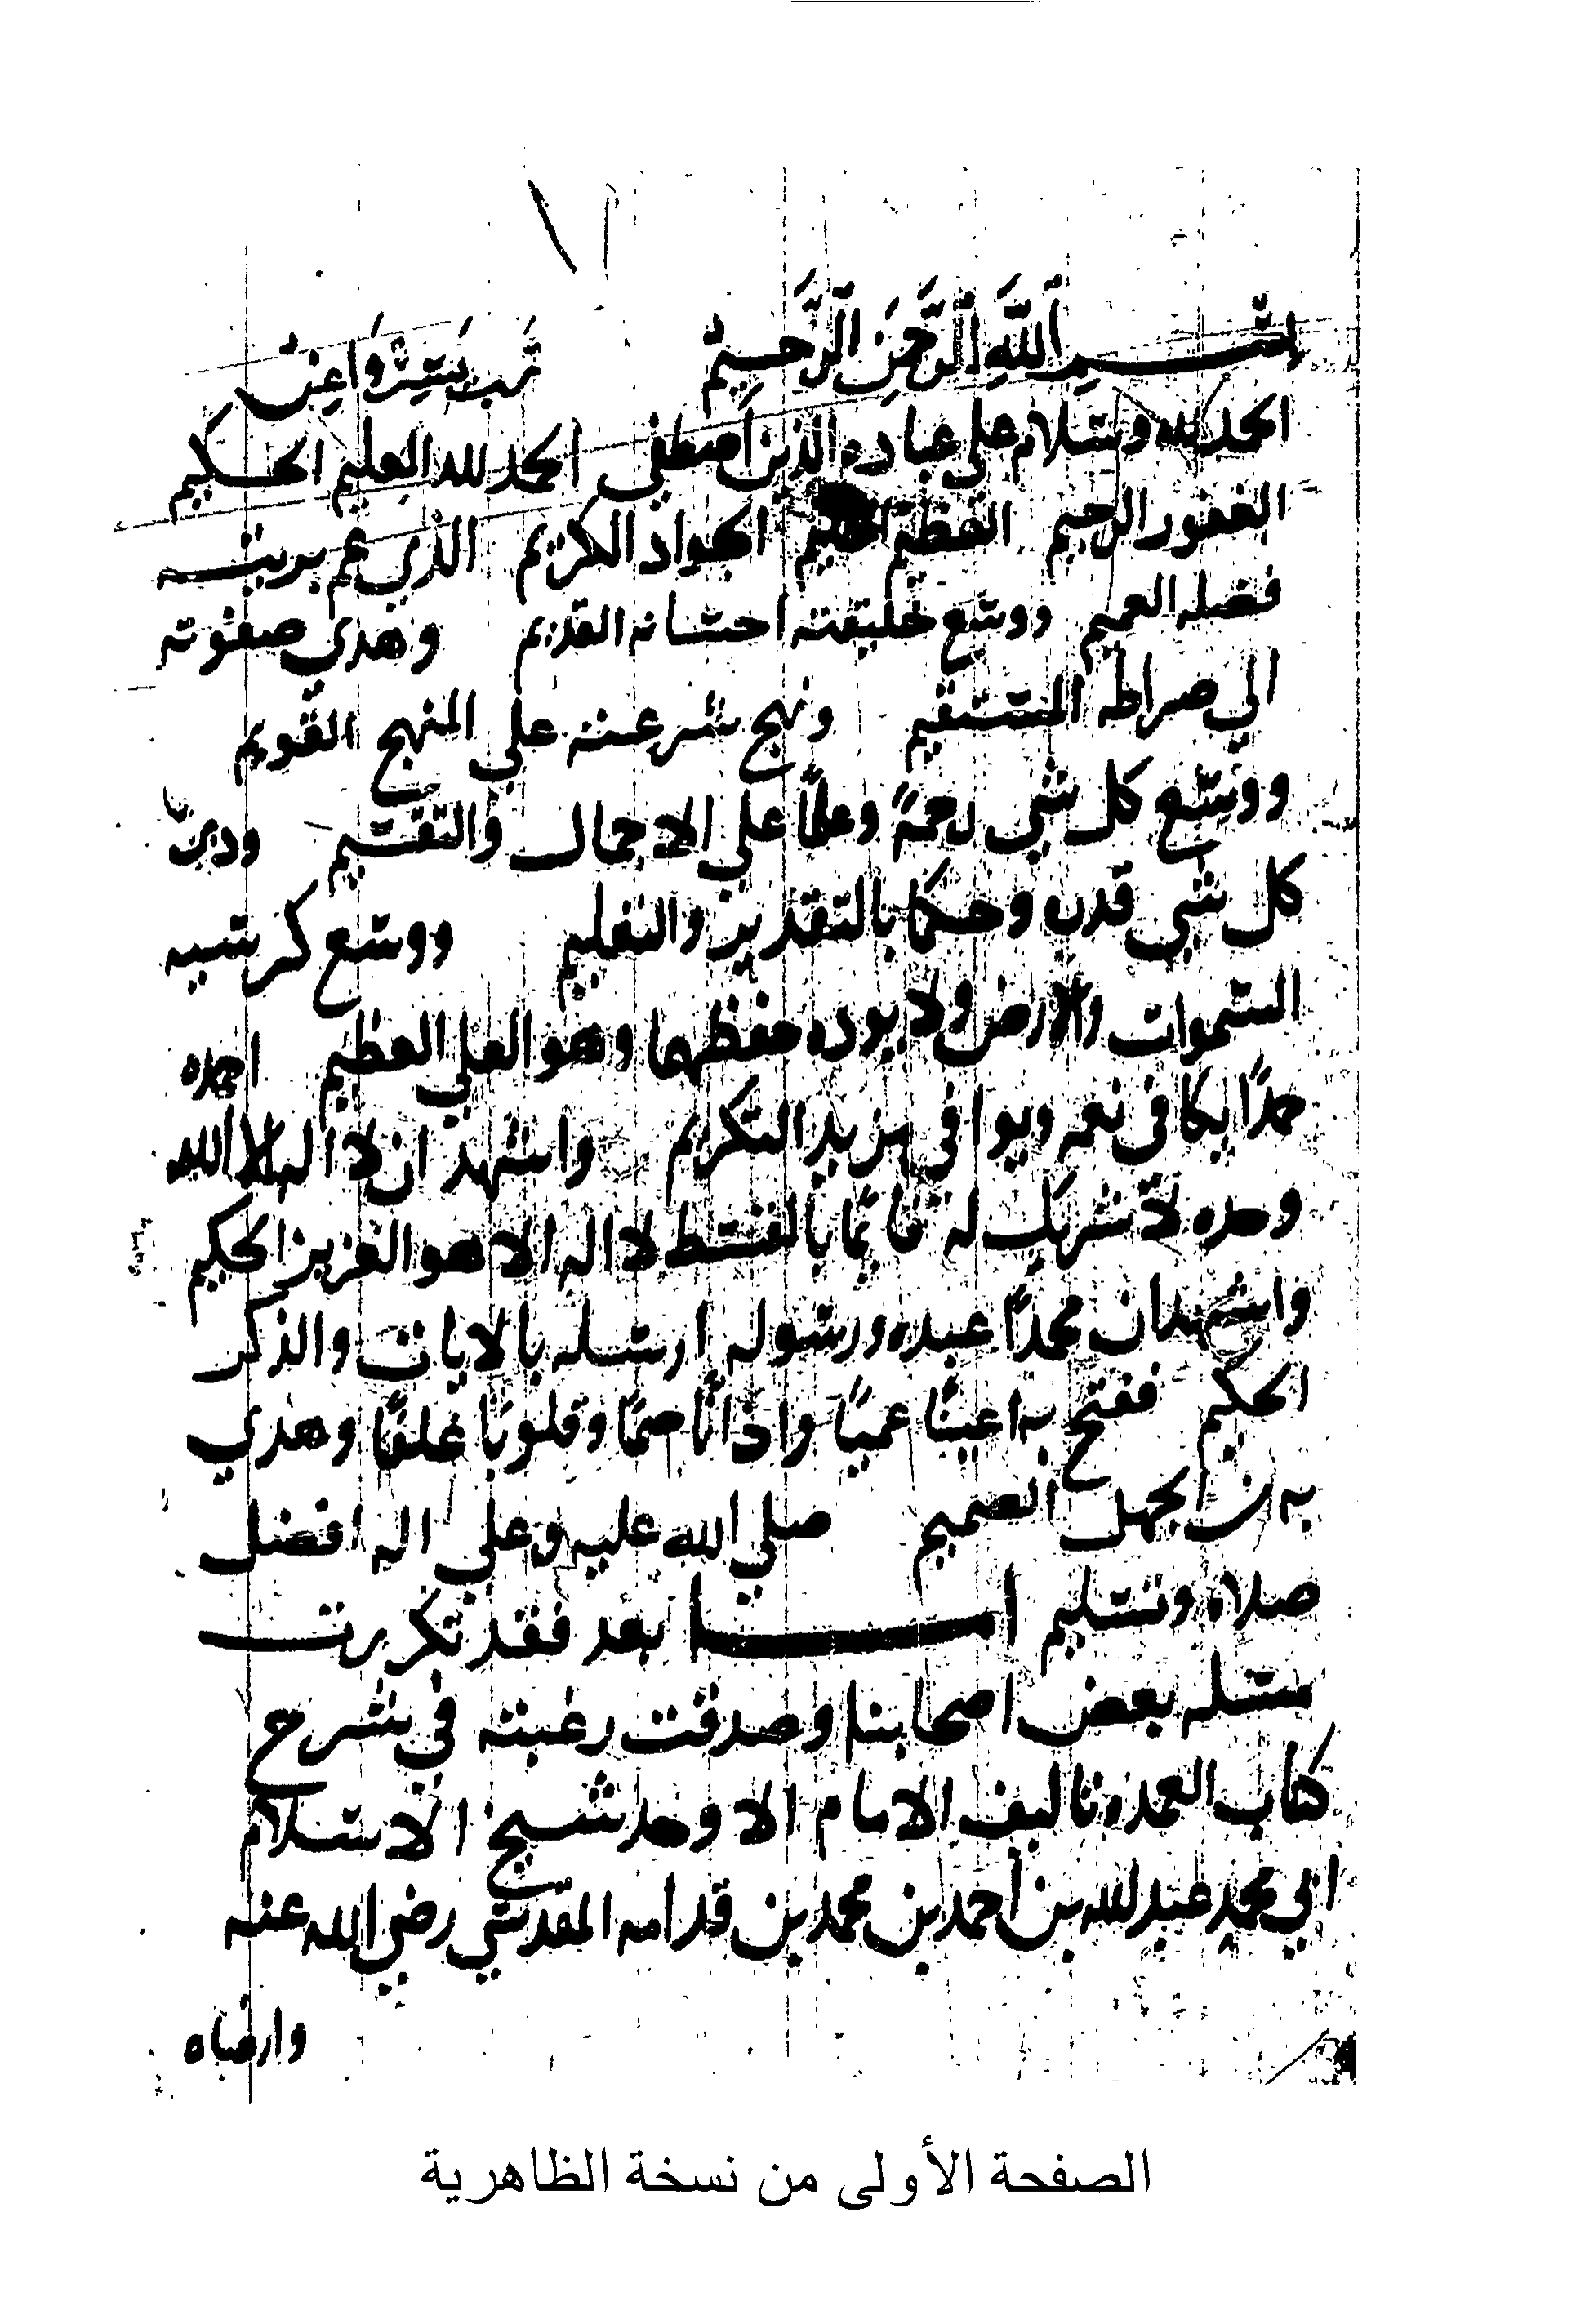 بسم اللَّهِ الرَّحمَنِ الرَّحِيم رَب يَسِّر وَاعِن
الحمد لله وسلام على عباده الذين اصطفى الحمد لله العليم الحكيم
الغفور الرحيم العظيم الحليم الجواد الكريم الذي عم بريته
فضله العميم ووسع خليقته احسانه القديم وهدي صفوته
الي صراطه المستقيم ونهج شرعته علي المنهج القويم
ووسع كل شي رحمةً وعلمًا علي الاجمال والتقسيم ودبر
كل شي قدرا وحكما بالتقدير والتعليم ووسع كرسيه
السموات والارض ولا يوده حفظهما وهو العلي العظيم احمده
حمدًا يكافي نعمه ويوافي مزيد التكريم واشهد ان لا اله الا الله
وحده لا شريك له قائمًا بالقسط لا اله الا هو العزيز الحكيم
واشهد ان محمدًا عبده ورسوله ارسله بالايات والذكر
الحكيم ففتح به اعينًا عميًا واذانًا صمًا وقلوبًا غلفًا وهدي
به من الجهل الصميم صلي الله عليه وعلي اله افضل
صلاة وتسليم امـــا بعد فقد تكررت
مسئلة بعض اصحابنا وصدقت رغبته في شرح
كتاب العمدة تاليف الامام الاوحد شيخ الاسلام
ابي محمد عبد الله بن أحمد بن محمد بن قدامه المقدسي رضي الله عنه
وارضاه
الصفحة الأولى من نسخة الظاهرية